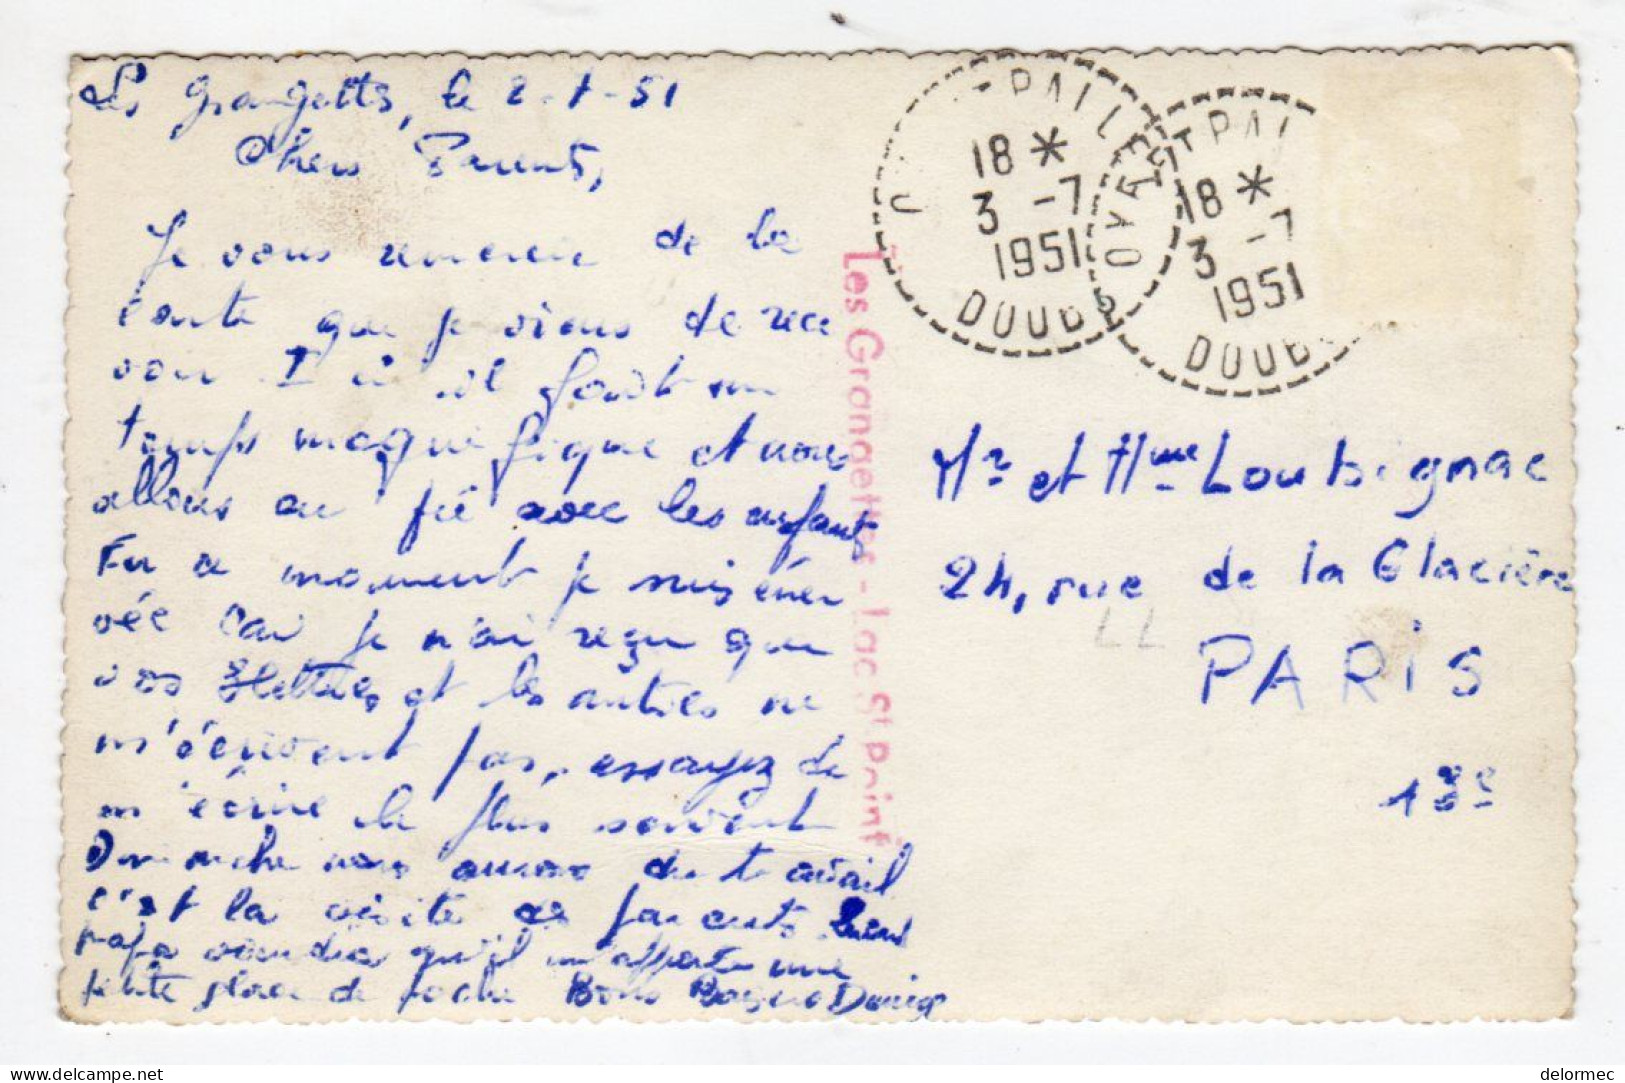 Les Grangettes, le 2-7-51
Chers Parents,
Je vous remercie de la
carte que je viens de rece
voir Ici il fait un
temps magnifique et nous
allons au pré avec les enfants
En ce moment je suis éner
vée car je n'ai reçu que
vos lettres et les autres ne
m'écrivent pas, essayez de
m'écrire le plus souvent
Dimanche nous aurons du travail
c'est la visite des parents
papa voudra qu'il m'apporte une
petite glace de poche Bons Baisers
Les Grangettes - Lac St Point
OYE ET PALLET
18 *
3 -7
1951
DOUBS
OYE ET PAL
18 *
3 -7
1951
DOUBS
Mr et Mme Loubignac
24, rue de la Glacière
PARIS
13e
LL
delormec